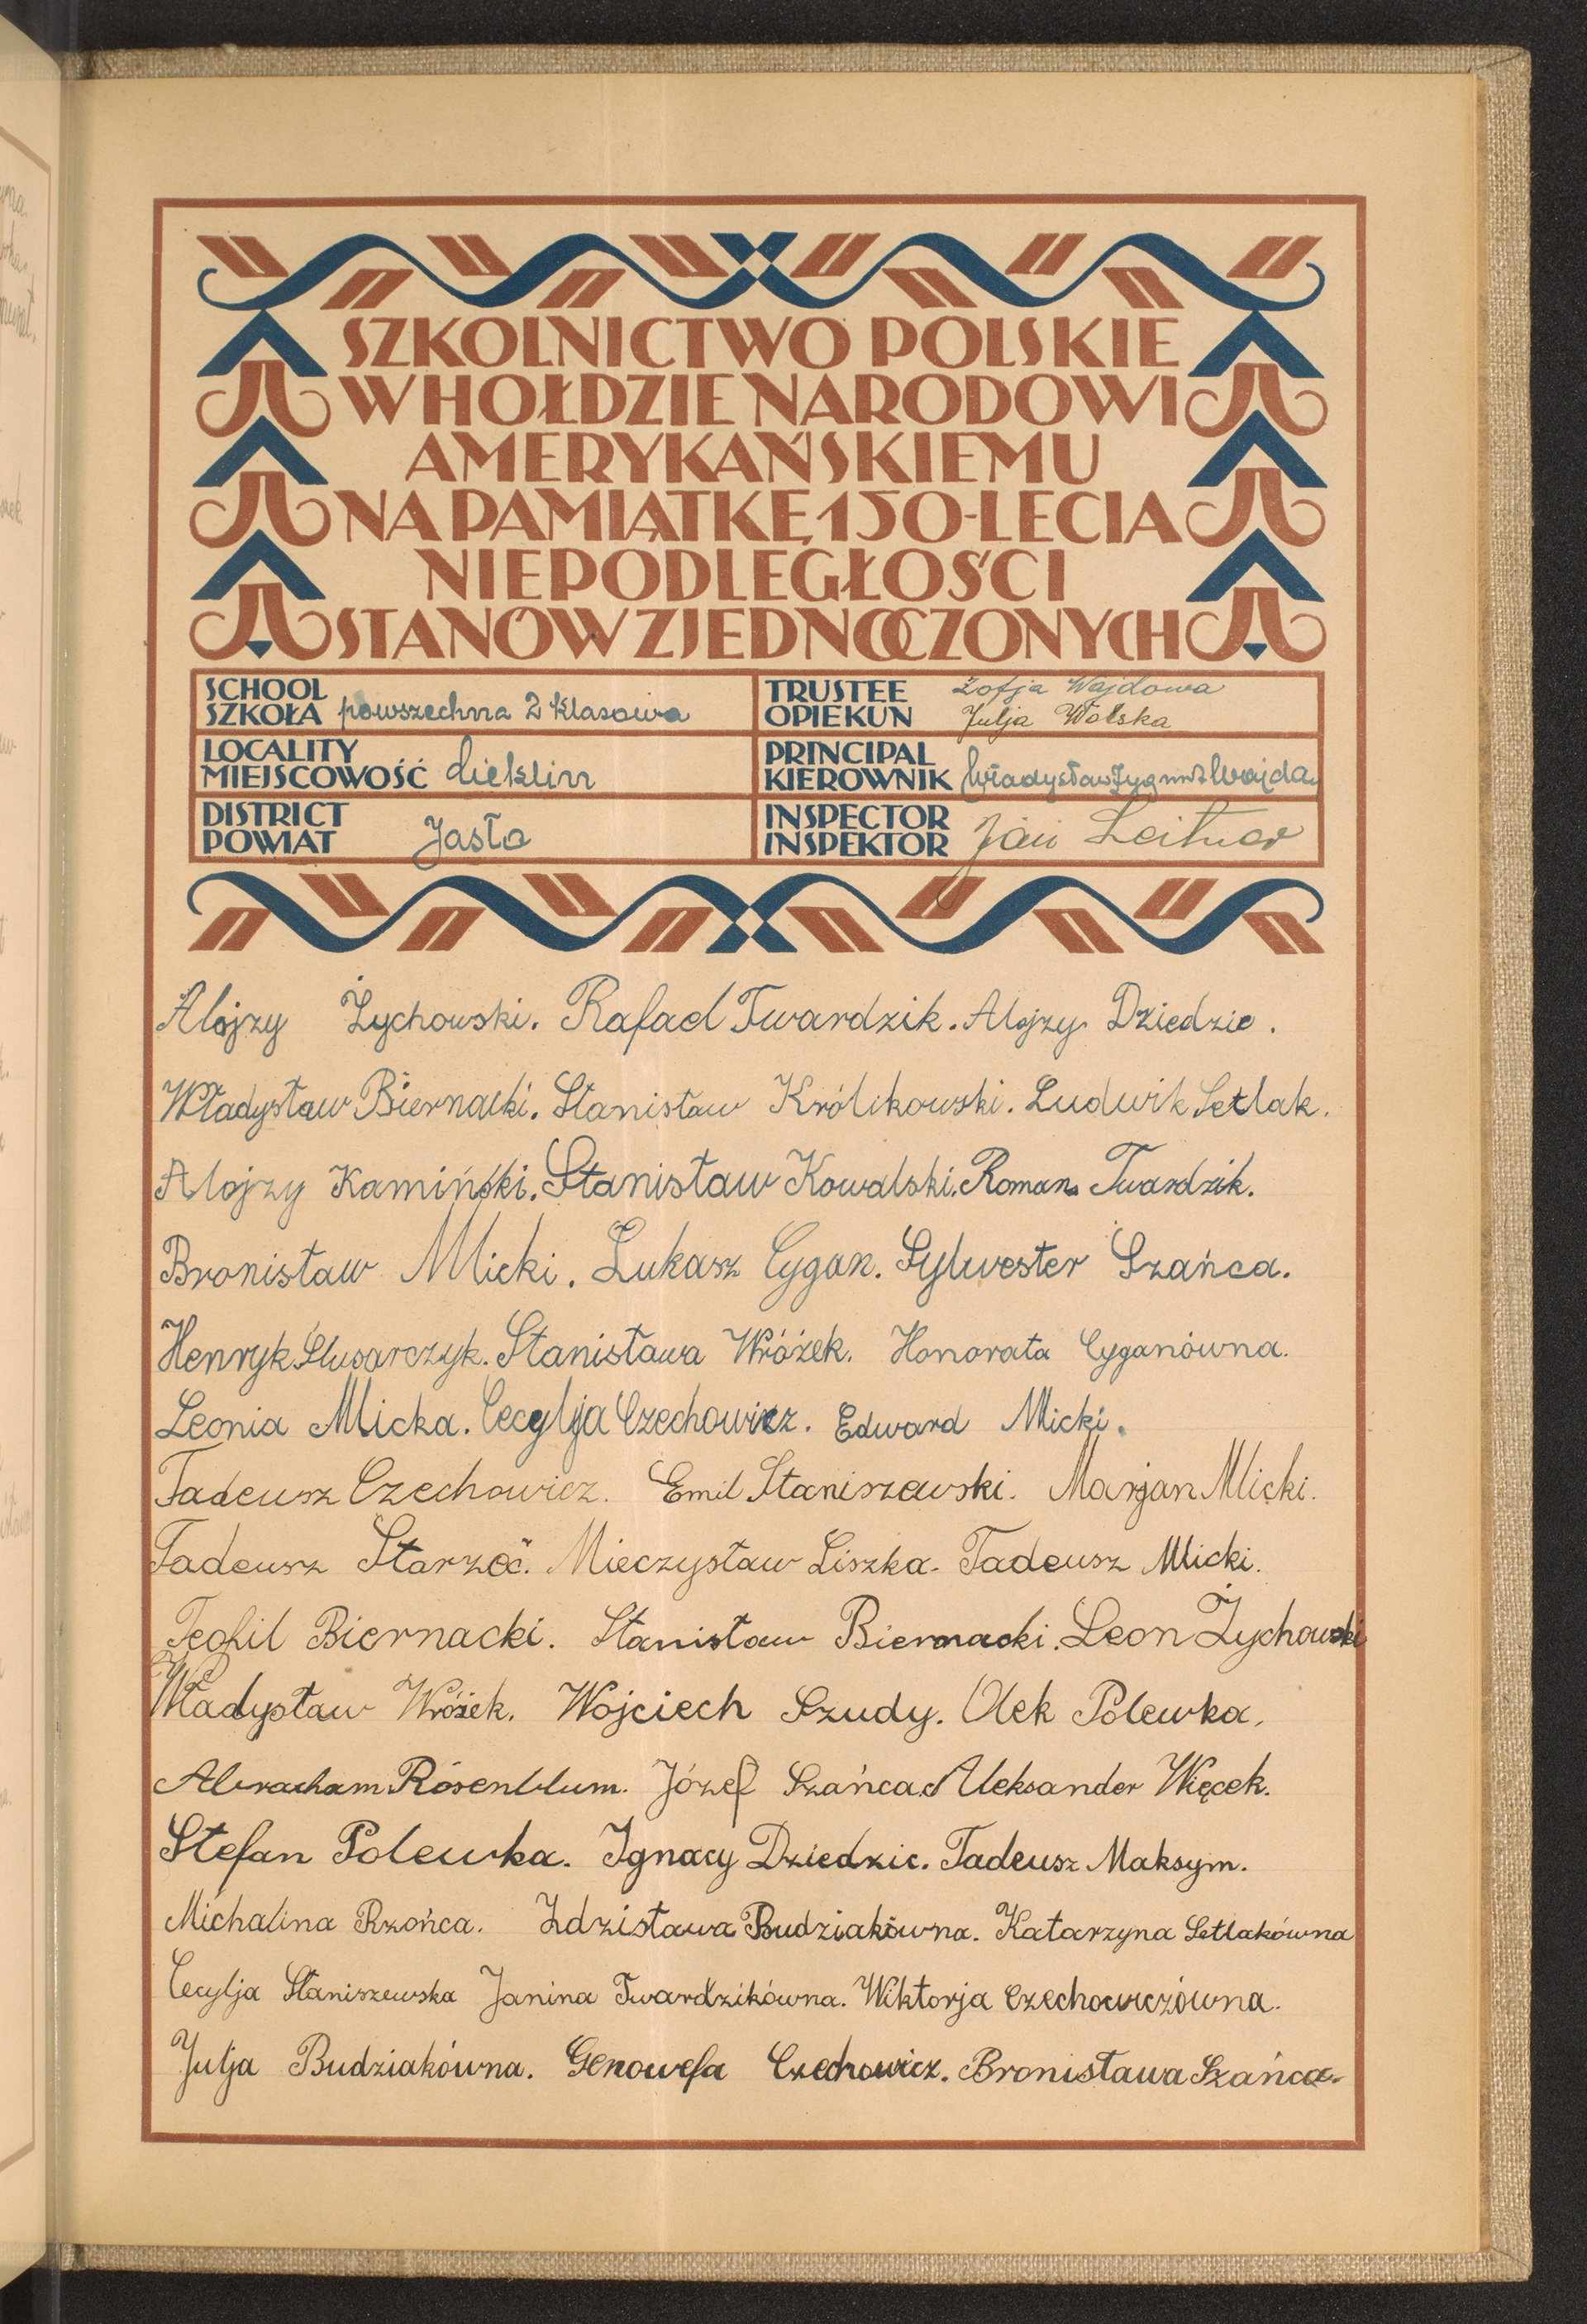 SZKOLNICTWO POLSKIE
W HOŁDZIE NARODOWI
AMERYKAŃSKIEMU
NA PAMIĄTKĘ 150-LECIA
NIEPODLEGŁOŚCI
STANÓW ZJEDNOCZONYCH
SCHOOL
SZKOŁA powszechna 2 klasowa
TRUSTEE Zofja Wajdowa
OPIEKUN Julja Wolska
LOCALITY
MIEJSCOWOŚĆ Cieklin
PRINCIPAL
KIEROWNIK Władysław Zygmunt Wajda
DISTRICT
POWIAT Jasło
INSPECTOR
INSPEKTOR Jan Leitner
Alojzy Żychowski. Rafael Twardzik. Alojzy Dziedzic.
Władysław Biernacki. Stanisław Królikowski. Ludwik Setlak.
Alojzy Kamiński. Stanisław Kowalski. Roman Twardzik.
Bronisław Mlicki. Łukasz Cygan. Sylwester Szańca.
Henryk Slusarczyk. Stanisława Wróżek. Honorata Cyganówna.
Leonia Mlicka. Cecylja Czechowicz. Edward Mlicki.
Tadeusz Czechowicz. Emil Staniszewski. Marjan Mlicki.
Tadeusz Starzec. Mieczysław Liszka. Tadeusz Mlicki.
Teofil Biernacki. Stanisław Biernacki. Leon Żychowski
Władysław Wróżek. Wojciech Szudy. Olek Polewka.
Abracham Rosenblum. Józef Szańca. Aleksander Więcek.
Stefan Polewka. Ignacy Dziedzic. Tadeusz Maksym.
Michalina Rzońca. Zdzisława Budziakówna. Katarzyna Setlakówna
Cecylja Staniszewska Janina Twardzikówna. Wiktorja Czechowiczówna.
Julja Budziakówna. Genowefa Czechowicz. Bronisława Szańca.